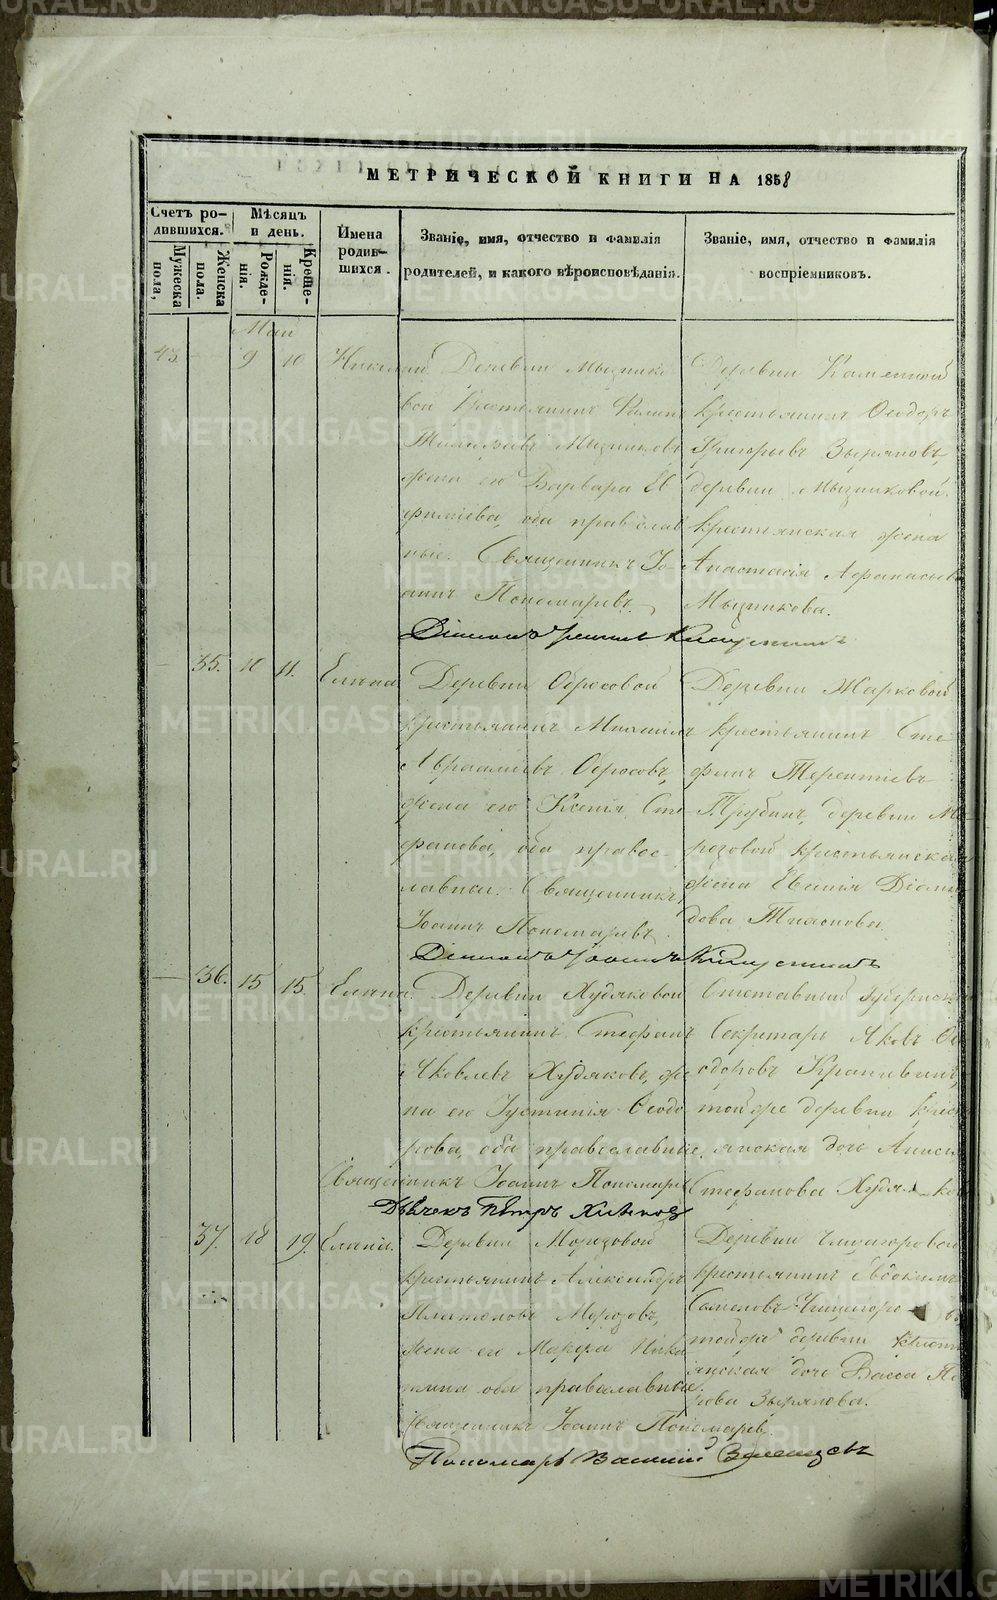 МЕТРИЧЕСКОЙ КНИГИ НА 1858
Счетъ ро-
дившихся.
Мужеска
пола,
Женска
пола.
Мѣсяцъ
и день.
Рожде-
нія.
Креще-
нія.
Имена
родив-
шихся.
Званіе, имя, отчество и фамилія
родителей, и какого вѣроисповѣданія.
Званіе, имя, отчество и фамилія
воспріемниковъ.
Май
43. 9 10 Николай
Деревни Мызнико
вой крестьянинъ
Мызниковъ
жена его Варвара Ев
фиміева, оба православ
ные. Священникъ Іо
аннъ Пономаревъ.
Деревни Каменной
крестьянинъ Ѳеодоръ
Григорьевъ Зыряновъ,
деревни Мызниковой
крестьянская жена
Анастасія Аѳанасьева
Мызникова.
35. 10 11. Елена
Деревни Обросовой
крестьянинъ Михаилъ
Авраамовъ Обросовъ,
жена его Ксенія Сте
фанова, оба правос
лавные. Священникъ
Іоаннъ Пономаревъ.
Деревни Жарковой
крестьянинъ Сте
фанъ Терентіевъ
Трубинъ, деревни Мо
розовой крестьянская
жена Евгенія Діоми
дова
36. 15 15. Елена.
Деревни Худяковой
крестьянинъ Стефанъ
Яковлевъ Худяковъ, же
на его Іустинія Ѳеодо
рова, оба православные.
Священникъ Іоаннъ Пономаревъ
Дьячекъ Петръ
Отставный Губернскій
Секретарь Яковъ Ѳе
одоровъ
той же деревни крест
янская дочь Анисія
Стефанова Худякова
37. 18 19. Елена.
Деревни Морозовой
крестьянинъ Александръ
Платоновъ Морозовъ,
жена его Марѳа Ники
тина оба православные.
Священникъ Іоаннъ Пономаревъ.
Деревни Чищегоровой
крестьянинъ Евдокимъ
той же деревни крест
янская дочь Васса Пе
рова Зырянова.
Пономарь Василій
METRIKI.GASO-URAL.RU